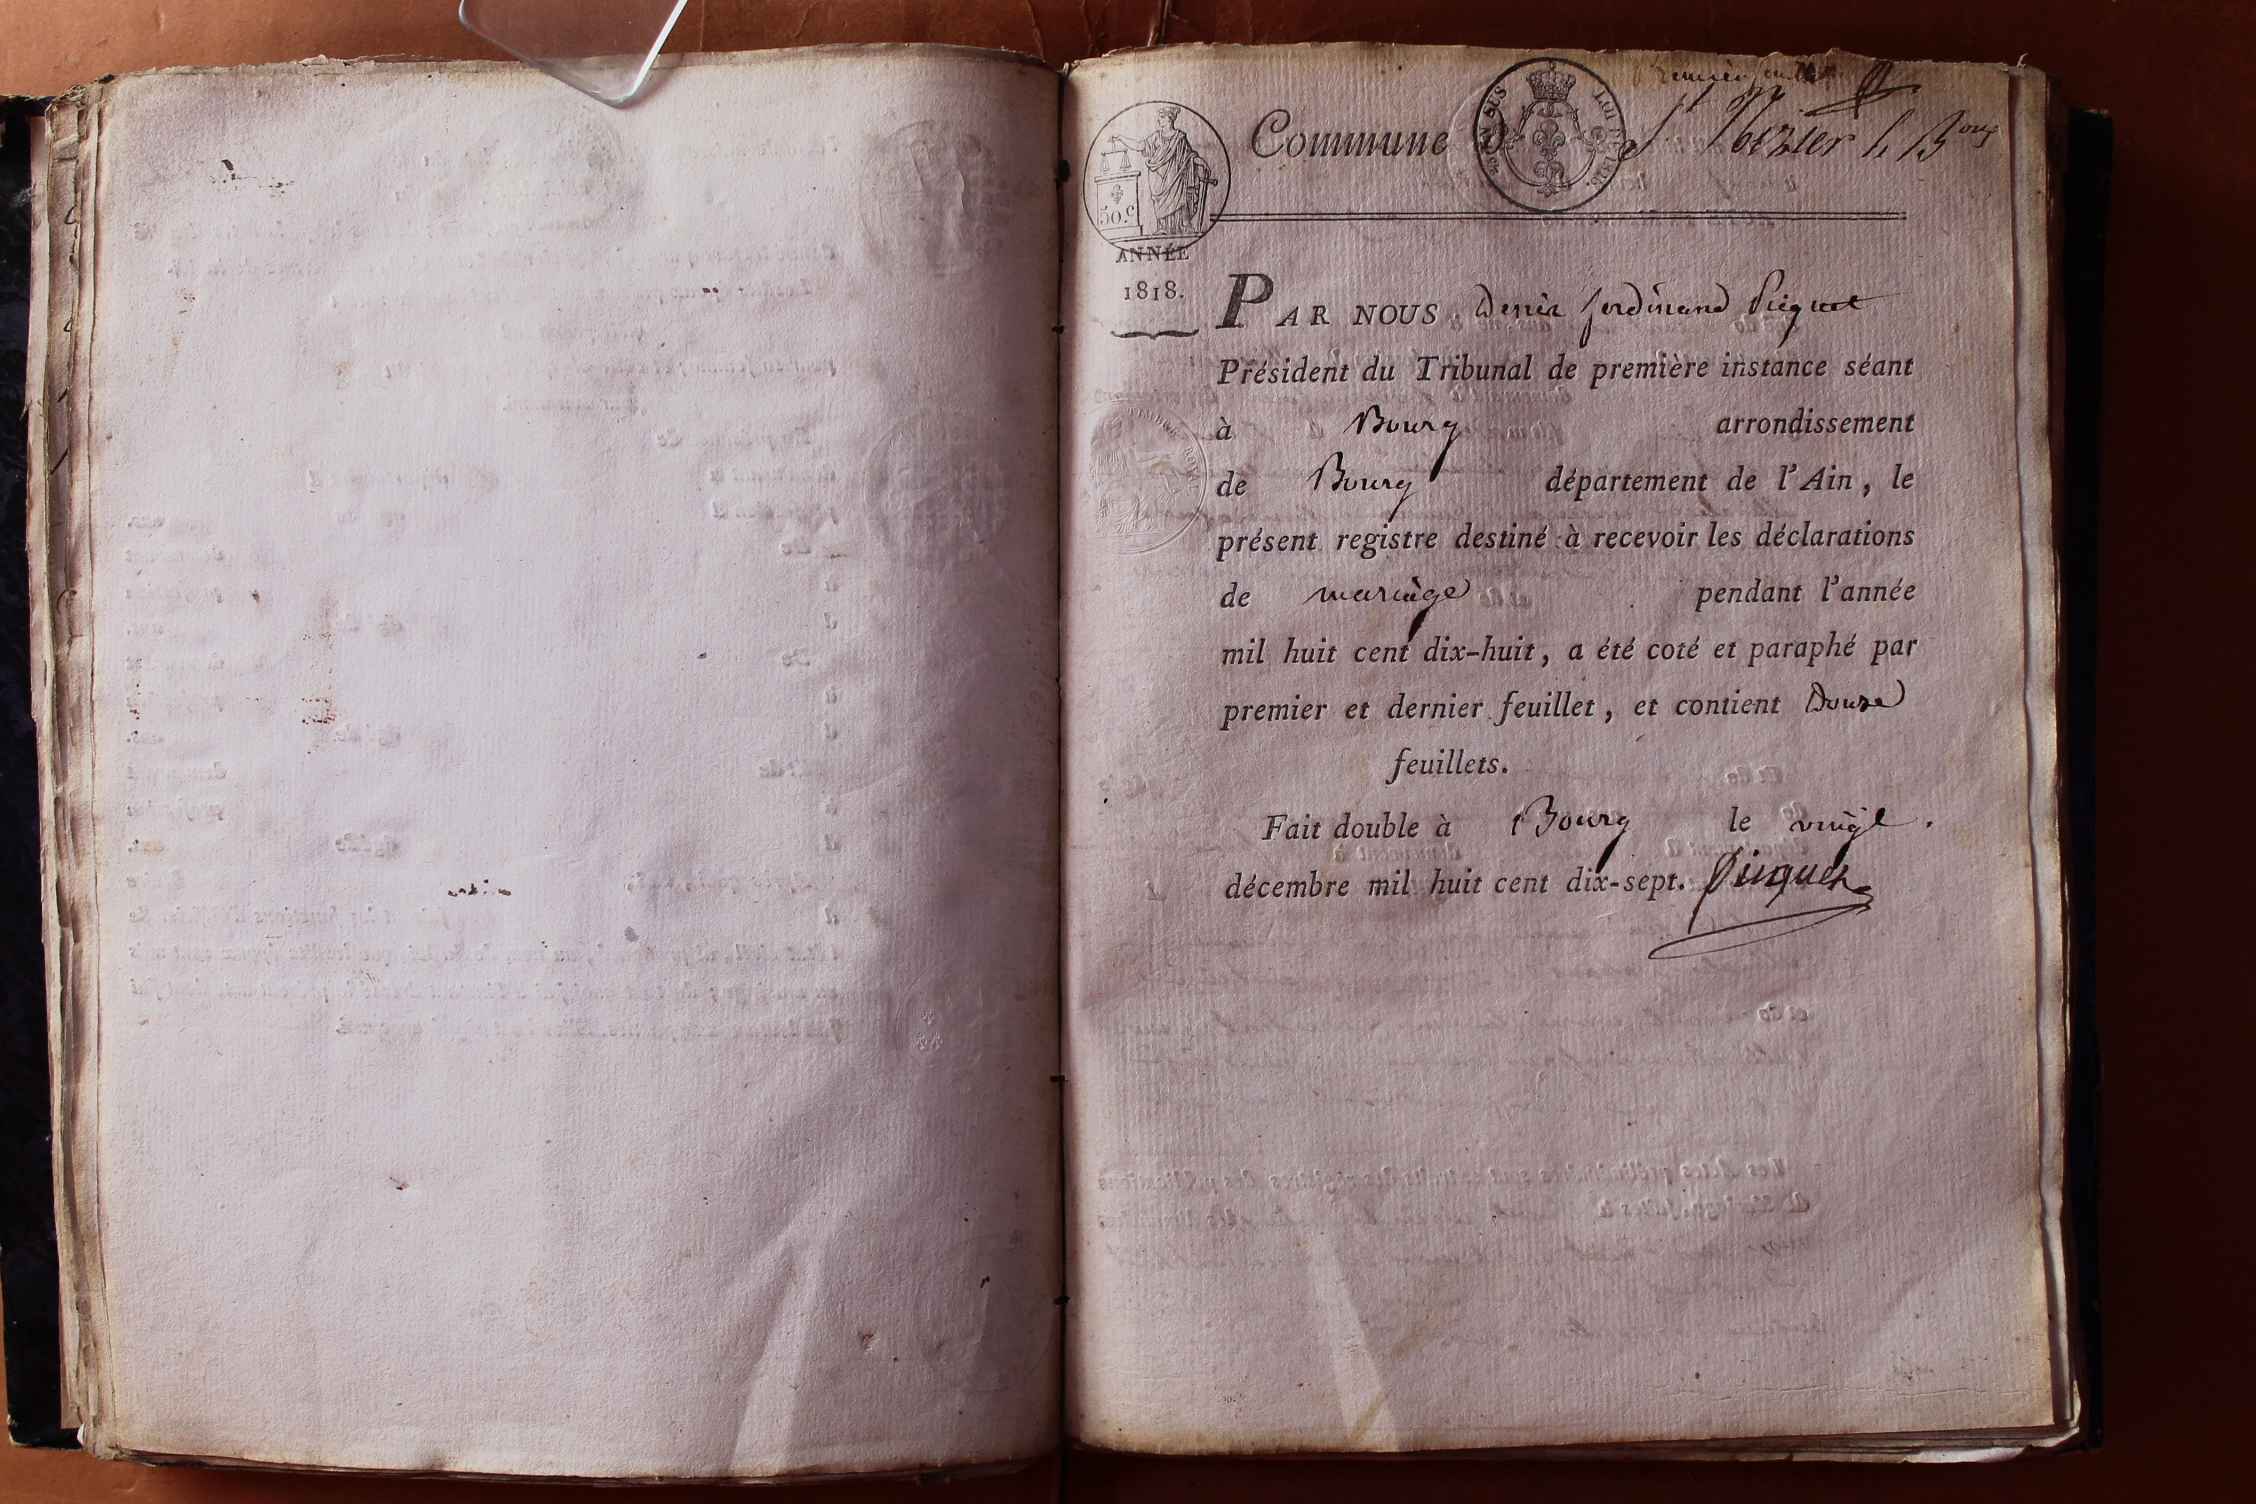 Premier feuillet
Commune de St Nizier le Boux
EN SUS LOI DE 1816.
50.c
ANNÉE
1818.
PAR NOUS Denis ferdinand Picquet
Président du Tribunal de première instance séant
à Bourg arrondissement
de Bourg département de l'Ain, le
présent registre destiné à recevoir les déclarations
de mariage pendant l'année
mil huit cent dix-huit, a été coté et paraphé par
premier et dernier feuillet, et contient Douze
feuillets.
Fait double à Bourg le vingt
décembre mil huit cent dix-sept. Picquet